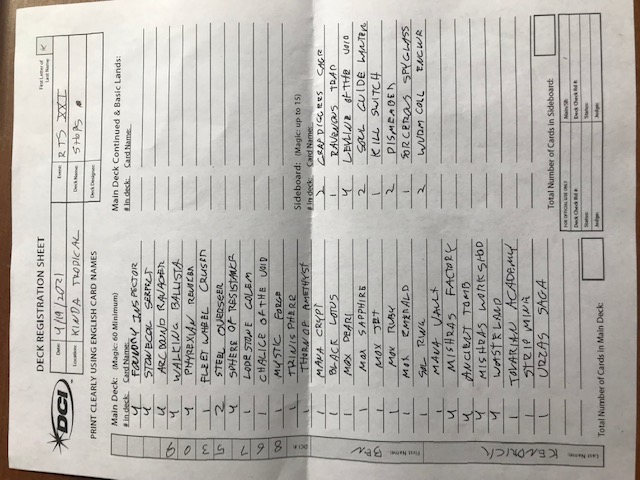 DECK REGISTRATION SHEET
First Letter of Last Name: K
DCI
Date: 4/19/2021
Event: RTS XXI
Location: KINDA TROPICAL
Deck Name: SHOPS
Deck Designer:
PRINT CLEARLY USING ENGLISH CARD NAMES
Main Deck: (Magic: 60 Minimum)
# in deck: Card Name:
4 FOUNDRY INSPECTOR
4 STONECOIL SERPENT
4 ARCBOUND RAVAGER
4 WALKING BALLISTA
4 PHYREXIAN REVOKER
1 FLEET WHEEL CRUSER
2 STEEL OVERSEER
4 SPHERE OF RESISTANCE
1 LODESTONE GOLEM
1 CHALICE OF THE VOID
1 MYSTIC FORGE
1 TRINISPHERE
1 THORN OF AMETHYST
1 MANA CRYPT
1 BLACK LOTUS
1 MOX PEARL
1 MOX SAPPHIRE
1 MOX JET
1 MOX RUBY
1 MOX EMERALD
1 SOL RING
1 MANA VAULT
4 MISHRAS FACTORY
4 ANCIENT TOMB
4 MISHRAS WORKSHOP
4 WASTELAND
1 TOLARIAN ACADEMY
1 STRIP MINE
1 URZAS SAGA
Total Number of Cards in Main Deck:
Main Deck Continued & Basic Lands:
# in deck: Card Name:
Sideboard: (Magic: up to 15)
# in deck: Card Name:
2 GRAFDIGGERS CAGE
1 RAVENOUS TRAP
4 LEYLINE OF THE VOID
2 SOUL GUIDE LANTERN
1 KILL SWITCH
2 DISMEMBER
1 SORCEROUS SPYGLASS
2 WURM COIL ENGINE
Total Number of Cards in Sideboard:
FOR OFFICIAL USE ONLY
Main/SB: /
Deck Check Rd #:
Deck Check Rd #:
Status:
Status:
Judge:
Judge:
Last Name: KENDRICK
First Name: BEN
DCI #: 8675309